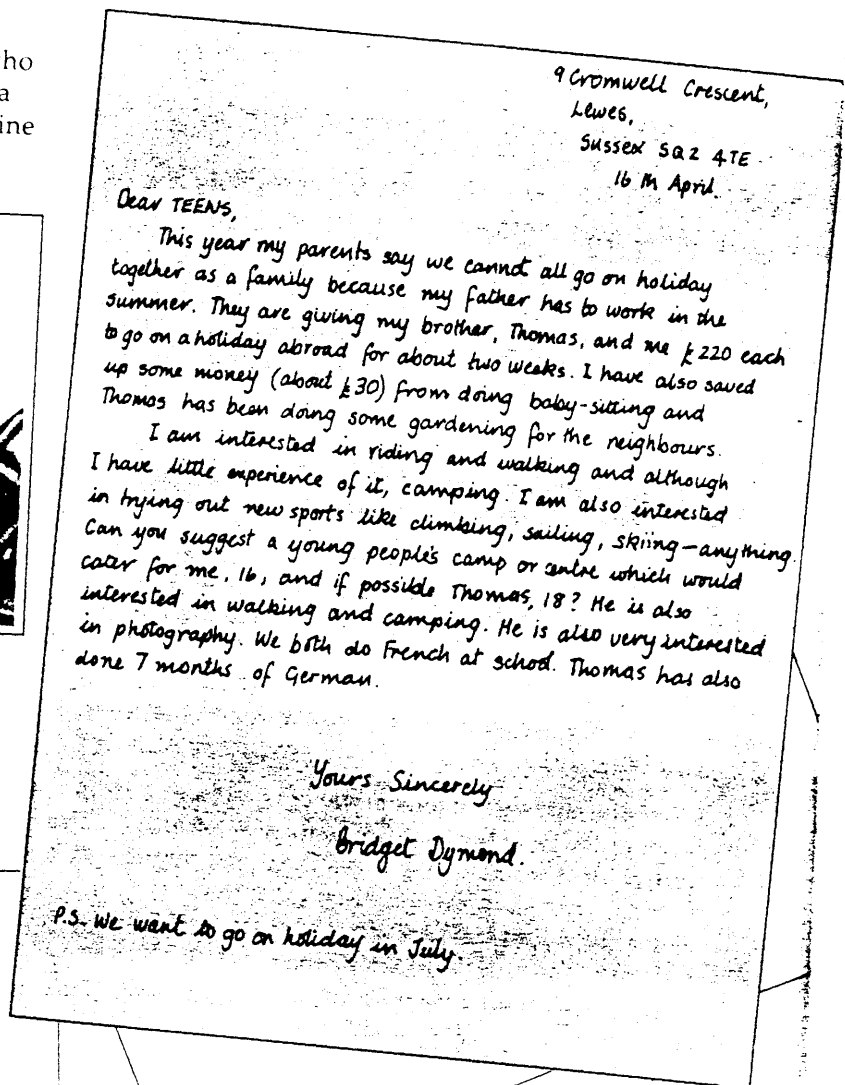 ho
a
ine
9 Cromwell Crescent,
Lewes,
Sussex SQ2 4TE
16th April.
Dear TEENS,
This year my parents say we cannot all go on holiday
together as a family because my father has to work in the
summer. They are giving my brother, Thomas, and me £220 each
to go on a holiday abroad for about two weeks. I have also saved
up some money (about £30) from doing baby-sitting and
Thomas has been doing some gardening for the neighbours.
I am interested in riding and walking and although
I have little experience of it, camping. I am also interested
in trying out new sports like climbing, sailing, skiing - anything.
Can you suggest a young people's camp or centre which would
cater for me, 16, and if possible Thomas, 18? He is also
interested in walking and camping. He is also very interested
in photography. We both do French at school. Thomas has also
done 7 months of German.
Yours Sincerely
Bridget Dymond.
P.S. We want to go on holiday in July